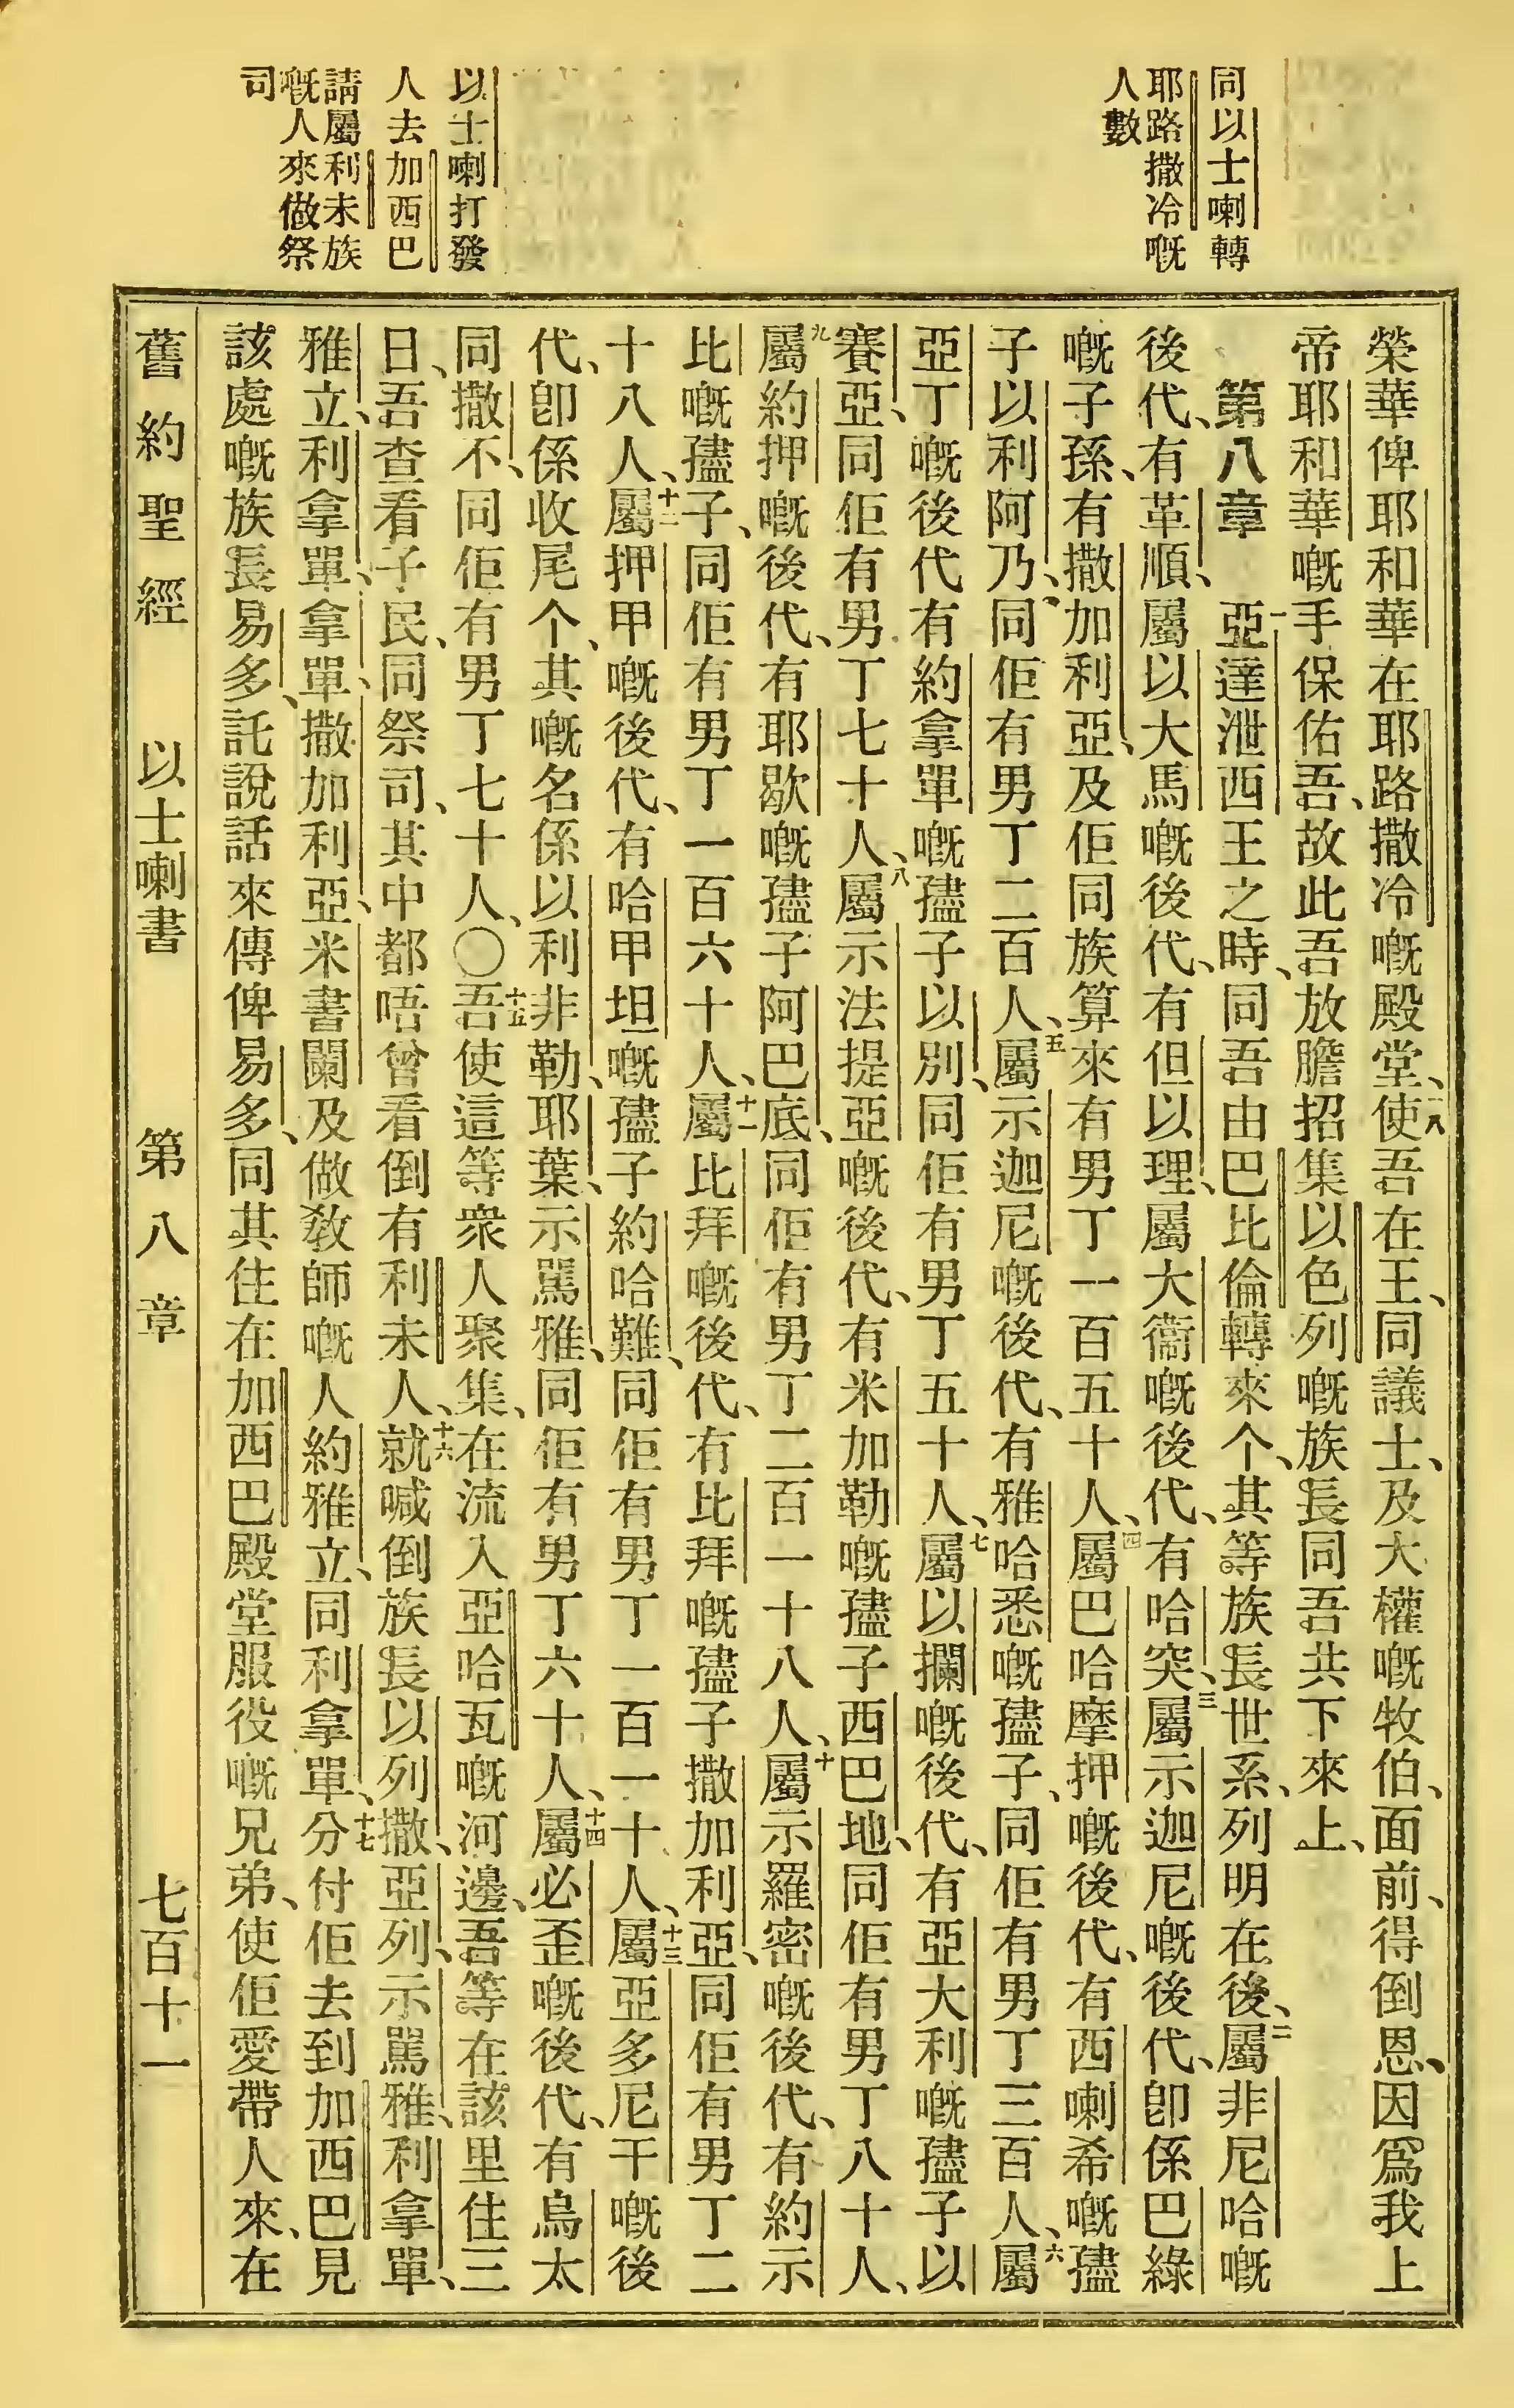 同以士喇轉
耶路撒冷嘅
人數
以士喇打發
人去加西巴
請屬利未族
嘅人來做祭
司
榮華俾耶和華在耶路撒冷嘅殿堂、二八使吾在王、同議士、及大權嘅牧伯、面前、得倒恩、因爲我上
帝耶和華嘅手保佑吾、故此吾放膽招集以色列嘅族長同吾共下來上、
第八章 一亞達泄西王之時、同吾由巴比倫轉來个、其等族長世系、列明在後、二屬非尼哈嘅
後代、有革順、屬以大馬嘅後代、有但以理、屬大衞嘅後代、有哈突、三屬示迦尼嘅後代、卽係巴綠
嘅子孫、有撒加利亞、及佢同族算來有男丁一百五十人、四屬巴哈摩押嘅後代、有西喇希嘅孻
子以利阿乃、同佢有男丁二百人、五屬示迦尼嘅後代、有雅哈悉嘅孻子、同佢有男丁三百人、六屬
亞丁嘅後代有約拿單嘅孻子以別、同佢有男丁五十人、七屬以攔嘅後代、有亞大利嘅孻子以
賽亞、同佢有男丁七十人、八屬示法提亞嘅後代、有米加勒嘅孻子西巴地、同佢有男丁八十人、
九屬約押嘅後代、有耶歇嘅孻子阿巴底、同佢有男丁二百一十八人、十屬示羅密嘅後代、有約示
比嘅孻子、同佢有男丁一百六十人、十一屬比拜嘅後代、有比拜嘅孻子撒加利亞、同佢有男丁二
十八人、十二屬押甲嘅後代、有哈甲坦嘅孻子約哈難、同佢有男丁一百一十人、十三屬亞多尼干嘅後
代、卽係收尾个、其嘅名係以利非勒、耶葉、示罵雅、同佢有男丁六十人、十四屬必歪嘅後代、有烏太
同撒不、同佢有男丁七十人、〇十五吾使這等衆人聚集、在流入亞哈瓦嘅河邊、吾等在該里住三
日、吾查看子民、同祭司、其中都唔曾看倒有利未人、十六就喊倒族長以列撒、亞列、示罵雅、利拿單、
雅立、利拿單、拿單、撒加利亞、米書闌及做敎師嘅人約雅立、同利拿單、十七分付佢去到加西巴見
該處嘅族長易多、託說話來傳俾易多、同其住在加西巴殿堂服役嘅兄弟、使佢愛帶人來、在
舊約聖經 以士喇書 第八章 七百十一